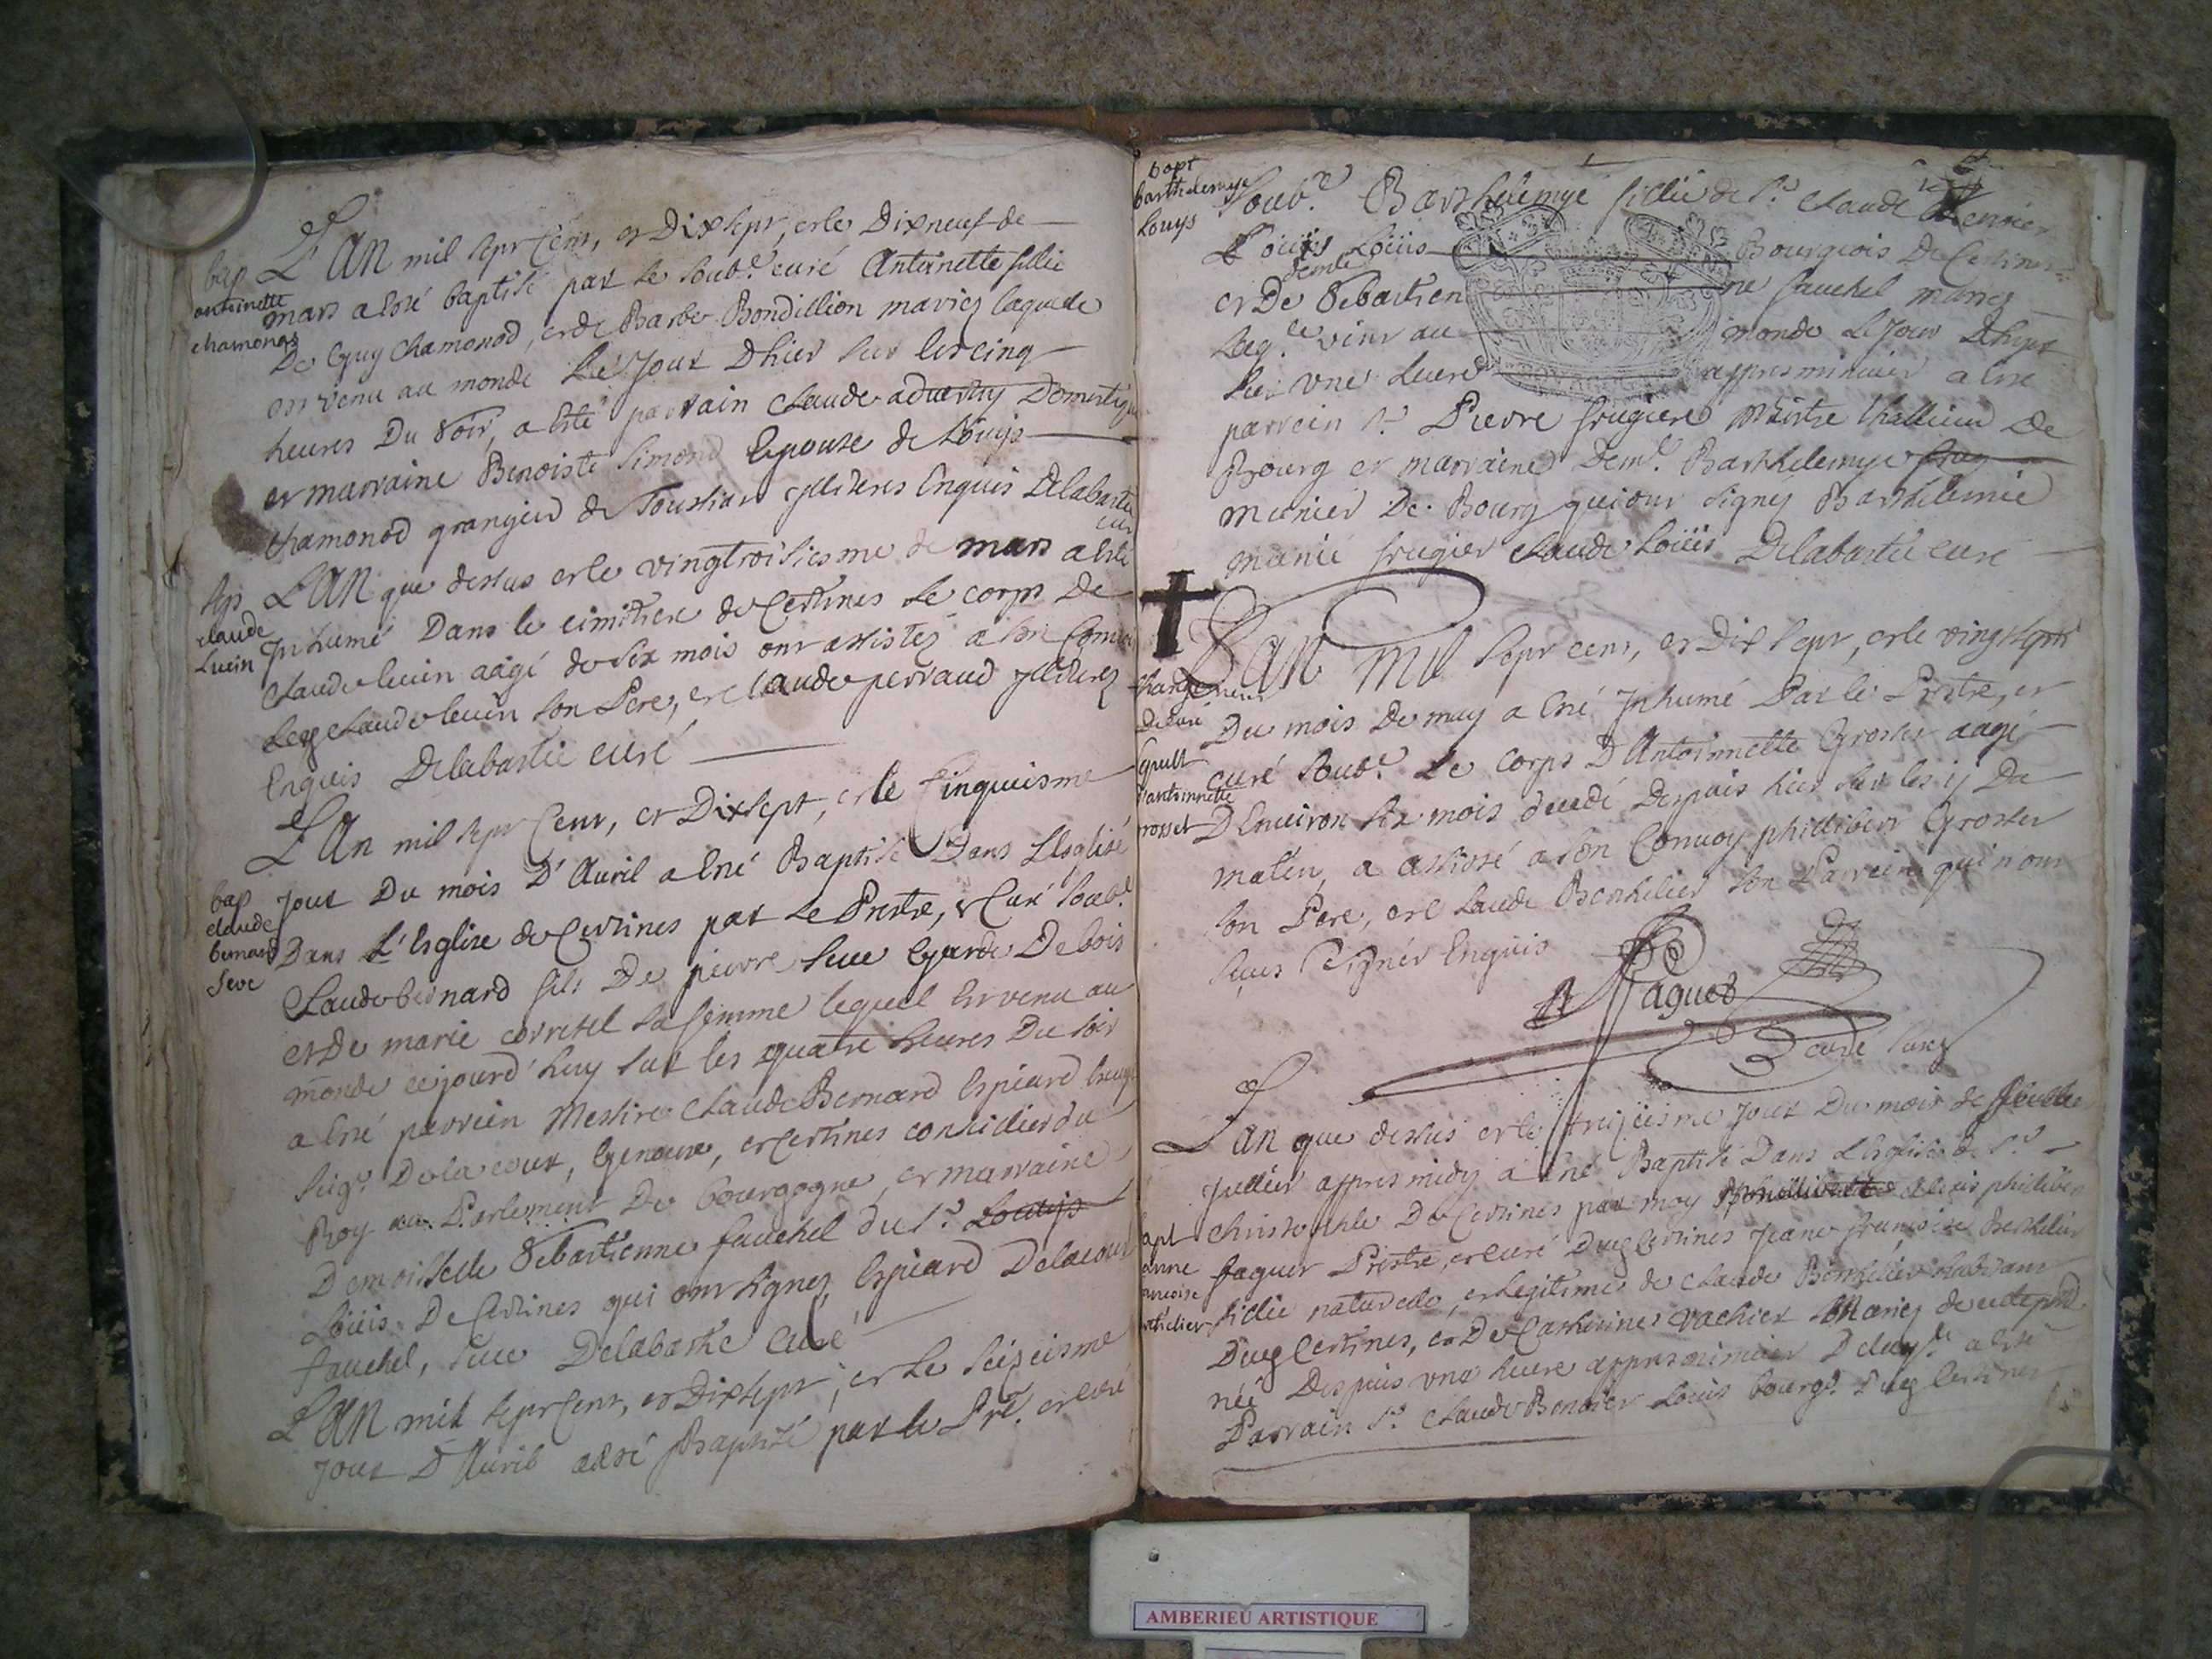 bap
antoinette
chamonod
L'An mil sept Cent, et Dixsept, et le Dixneuf de
mars a esté baptisé par le soub.e curé Antoinette fillie
De Guy Chamonod, et de Barbe Bondillion mariez laquelle
est venu au monde Le Jour D'hier sur les cinq
heures Du soir, a esté parrain Claude Domestique
et marraine Benoiste Simond Epouse de Louys
Chamonod grangier de illiteres Enquis Delabastie
curé
Claude
Luein
L'An que dessus et le vingtroisiesme de mars a esté
Inhumé Dans le cimitiere de Certines Le corps De
Claude luein aagé de six mois ont assistez a son Convoy
Claude luein son Pere, et Claude perraud illiterez
Enquis Delabastie curé
L'An mil sept Cent, et Dixsept, et le Cinquiesme
bap
claude
bernard
Seve
Jour Du mois D'Auril a esté Baptisé Dans L'Esglise
Dans L'Esglise de Certines par Le Prestre, et Curé soub.e
Claude bernard fils De pierre Seve Garde De bois
et De marie corretel sa femme lequel est venu au
monde cejourd'huy sur les quatre heures Du soir
a esté parrein Messire Claude Bernard Espiard
Seigr Dela cour, et Certines consillier du
Roy au Parlement De bourgogne, et marraine
Demoiselle Sebastienne fauchel du Sr Louys
Loüis De Certines qui ont signez Espiard Delacour
fauchel, Seve Delabastie Curé
L'An mil sept Cent, et Dixsept, et le Seiziesme
Jour D'Auril a esté Baptisé par le Pre. et curé
bapt
barthelemye
Louys
Soub.e Barthelemye fillie de Sr Claude Benoier
Loüis Loüis Bourgeois De Certines
demlle
et De Sebastienne fauchel mariez
Laq.le vint au monde Le Jour D'hyer
sur une heure appres minuict a esté
parrein Sr Pierre frugiere De
Bourg et marraine Demle Barthelemye frug
munier De Bourg qui ont signez Barthelemie
munié frugier Claude Loüis Delabastie curé
L'an mil sept cent, et Dix sept, et le vingt sept
changement
De curé
Du mois De may a esté Inhumé Par le Prestre, et
sepult
D'antoinnette
grosset
curé soub.e Le corps D'Antoinnette Grosset aagé
D'Enuiron six mois decedé Despuis hier sur les ij Du
matin, a assisté a son Conuoy phillibert Grosset
son Pere, et Claude Berthelier son Parrein qui n'ont
sceus signer Enquis
Jaguet
Curé
L'an que dessus et le treiziesme Jour Du mois de Juillet
Juillet appres midy a esté Baptisé Dans L'Esglise de St
Christophle De Certines par moy phillibert
bapt
Jeanne
francoise
berthelier
Jaguet Prestre, et curé Dug Certines Jeane françoise Berthelier
fillie naturelle, et legitime de Claude Berthelier habitant
Dug Certines, et De Catherine Vachier Mariez
née Despuis une heure appres minuict a esté
Parrain Sr Claude Benoier Louis bourgs Dug Certines
AMBERIEU ARTISTIQUE